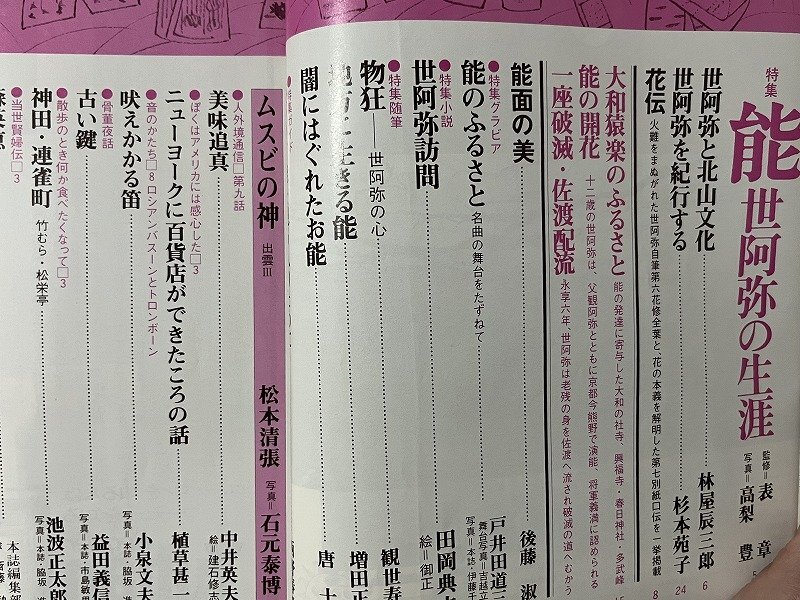 特集
能 世阿弥の生涯
監修=表 章
写真=高梨 豊
世阿弥と北山文化 林屋辰三郎 6
世阿弥を紀行する 杉本苑子 24
花伝 火難をまぬがれた世阿弥自筆第六花修全葉と、花の本義を解明した第七別紙口伝を一挙掲載 8
大和猿楽のふるさと 能の発達に寄与した大和の社寺、興福寺・春日神社・多武峰
能の開花 十二歳の世阿弥は、父観阿弥とともに京都今熊野で演能、将軍義満に認められる
一座破滅・佐渡配流 永享六年、世阿弥は老残の身を佐渡へ流され破滅の道へむかう
能面の美 後藤 淑
●特集グラビア
能のふるさと 名曲の舞台をたずねて 戸井田道三
舞台写真=吉越立
写真=本誌・伊藤千
●特集小説
世阿弥訪問 田岡典
絵=御正
●特集随筆
物狂――世阿弥の心 観世寿
地方に生きる能 増田正
闇にはぐれたお能 唐 十
ムスビの神 出雲III 松本清張 写真=石元泰博
●人外境通信□第九話
美味追真 中井英夫
絵=建石修志
●ぼくはアメリカには感心した□3
ニューヨークに百貨店ができたころの話 植草甚一
●音のかたち□8 ロシアンバスーンとトロンボーン
吠えかかる笛 小泉文夫
写真=本誌・脇坂 進
●骨董夜話
古い鍵 益田義信
写真=本誌・市島敏男
●散歩のとき何か食べたくなって□3
神田・連雀町 竹むら・松栄亭 池波正太郎
写真=本誌・脇坂 進
●当世賢婦伝□3
本誌編集部